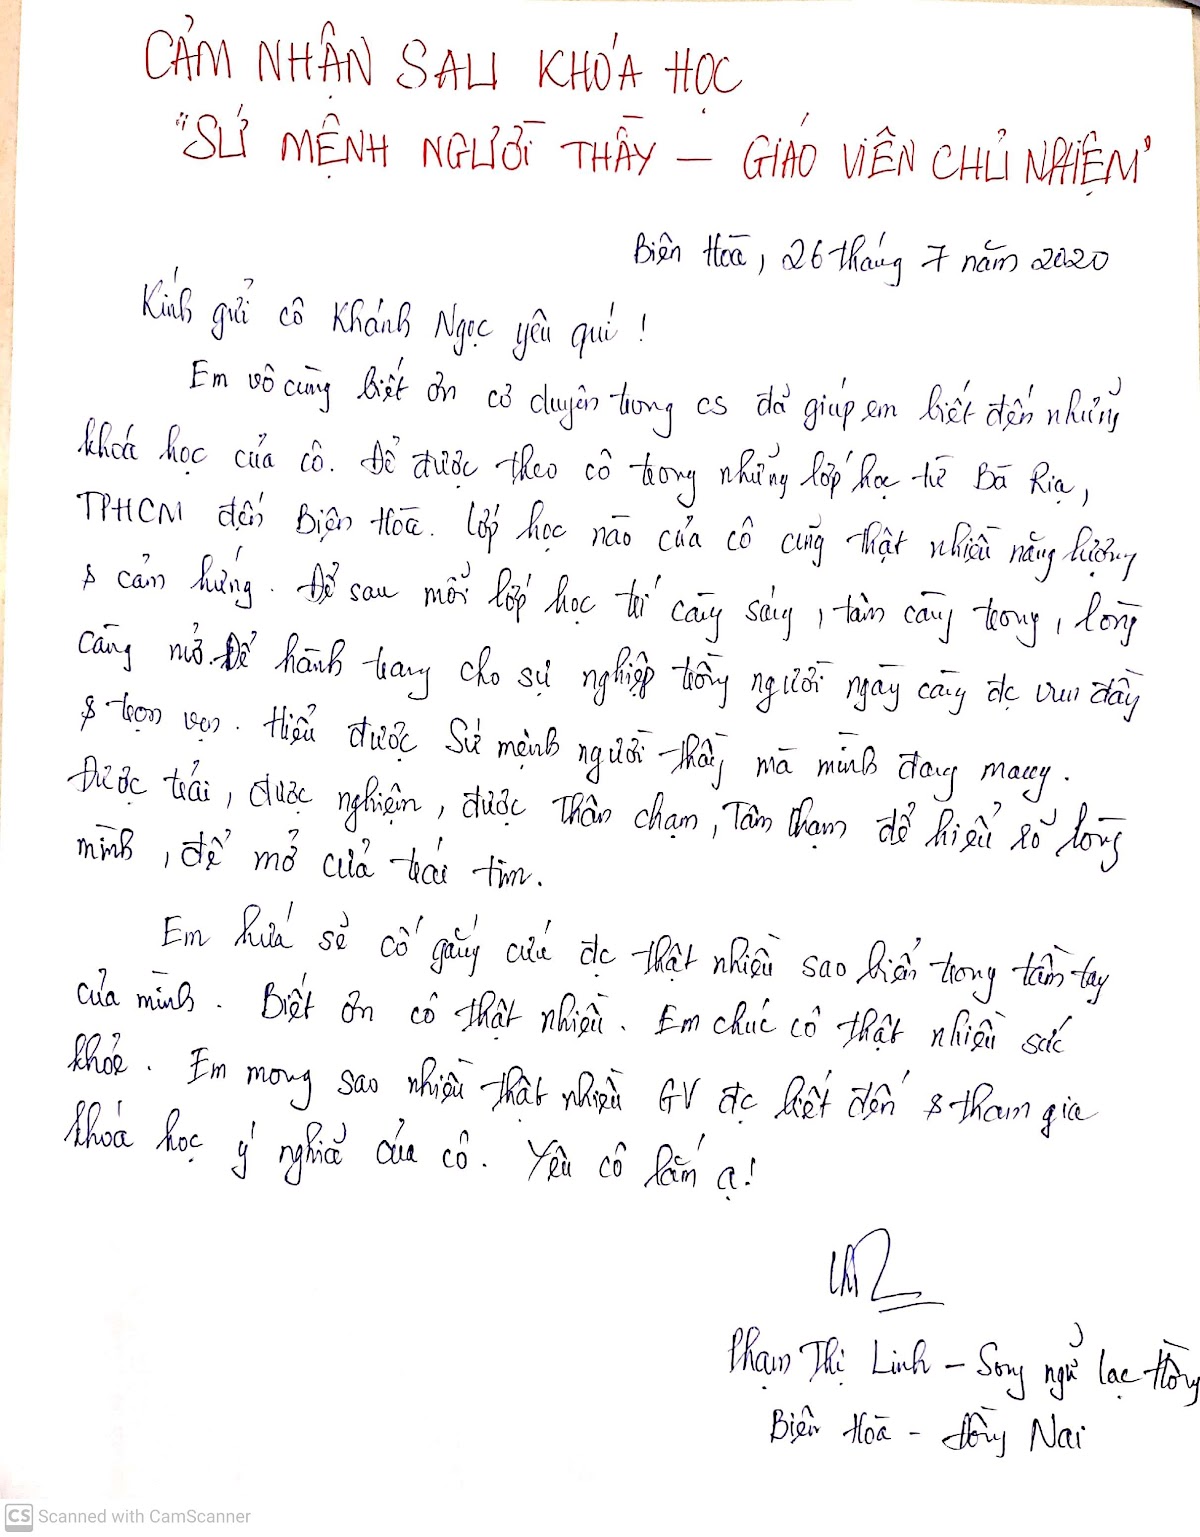 CẢM NHẬN SAU KHÓA HỌC
"SỨ MỆNH NGƯỜI THẦY – GIÁO VIÊN CHỦ NHIỆM"
Biên Hoà, 26 tháng 7 năm 2020
Kính gửi cô Khánh Ngọc yêu quí !
Em vô cùng biết ơn cơ duyên trong cs đã giúp em biết đến những
khoá học của cô. Để được theo cô trong những lớp học từ Bà Rịa,
TPHCM đến Biên Hoà. Lớp học nào của cô cũng thật nhiều năng lượng
& cảm hứng. Để sau mỗi lớp học trí càng sáng, tâm càng trong, lòng
càng mở. Để hành trang cho sự nghiệp trồng người ngày càng đc vun đầy
& trọn vẹn. Hiểu được Sứ mệnh người thầy mà mình đang mang.
Được trải, được nghiệm, được Thân chạm, Tâm chạm để hiểu rõ lòng
mình, để mở cửa trái tim.
Em hứa sẽ cố gắng cứu đc thật nhiều sao biển trong tầm tay
của mình. Biết ơn cô thật nhiều. Em chúc cô thật nhiều sức
khỏe. Em mong sao nhiều thật nhiều GV đc biết đến & tham gia
khóa học ý nghĩa của cô. Yêu cô lắm ạ!
Phạm Thị Linh – Song ngữ Lạc Hồng
Biên Hoà - Đồng Nai
CS Scanned with CamScanner